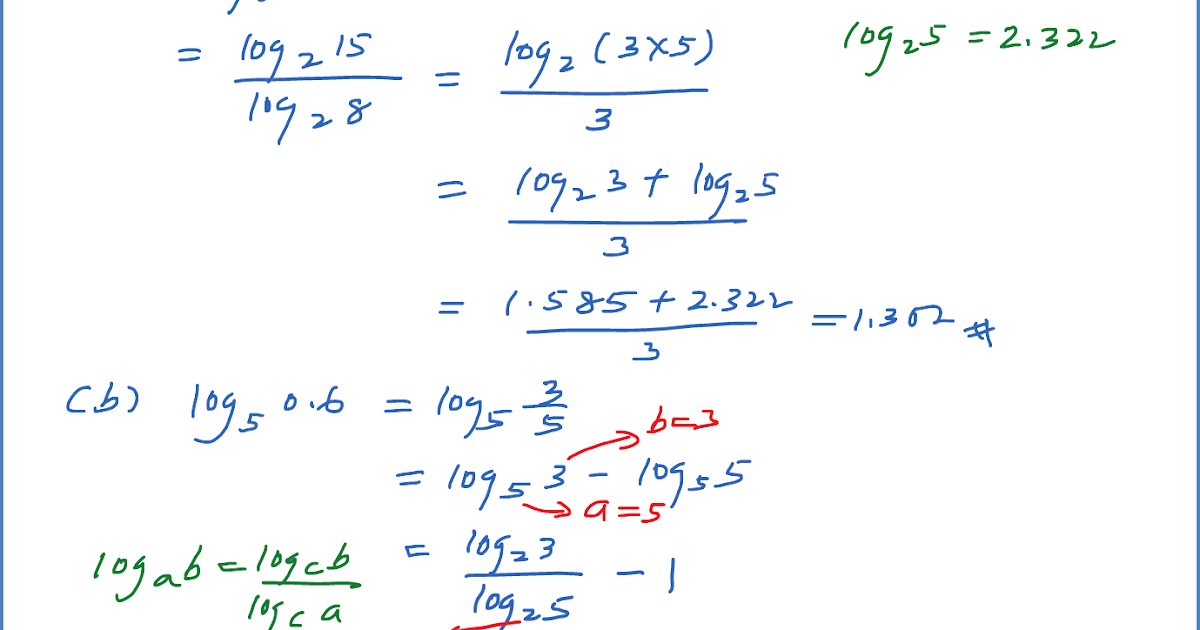 = log₂ 15 / log₂ 8 = log₂ (3×5) / 3
log₂5 = 2.322
= log₂ 3 + log₂5 / 3
= 1.585 + 2.322 / 3 = 1.302 #
(b) log₅ 0.6 = log₅ 3/5
b=3
= log₅ 3 - log₅ 5
a=5
logₐb = log_c b / log_c a
= log₂3 / log₂5 - 1